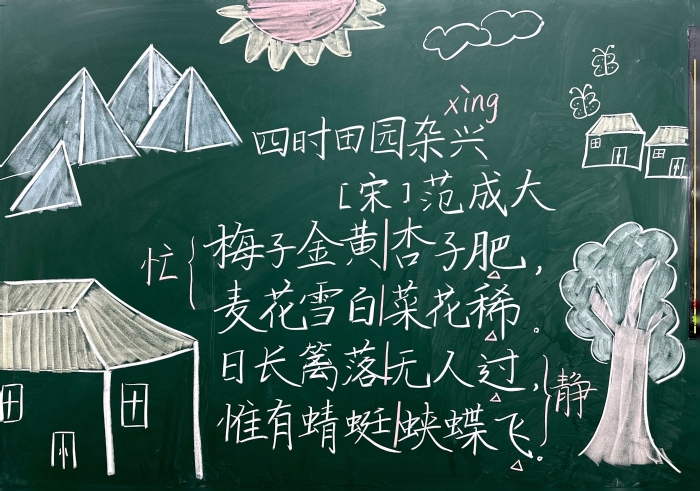 xìng
四时田园杂兴
[宋]范成大
忙{梅子金黄|杏子肥，
麦花雪白|菜花稀。
日长篱落|无人过，}静
惟有蜻蜓|蛱蝶飞。